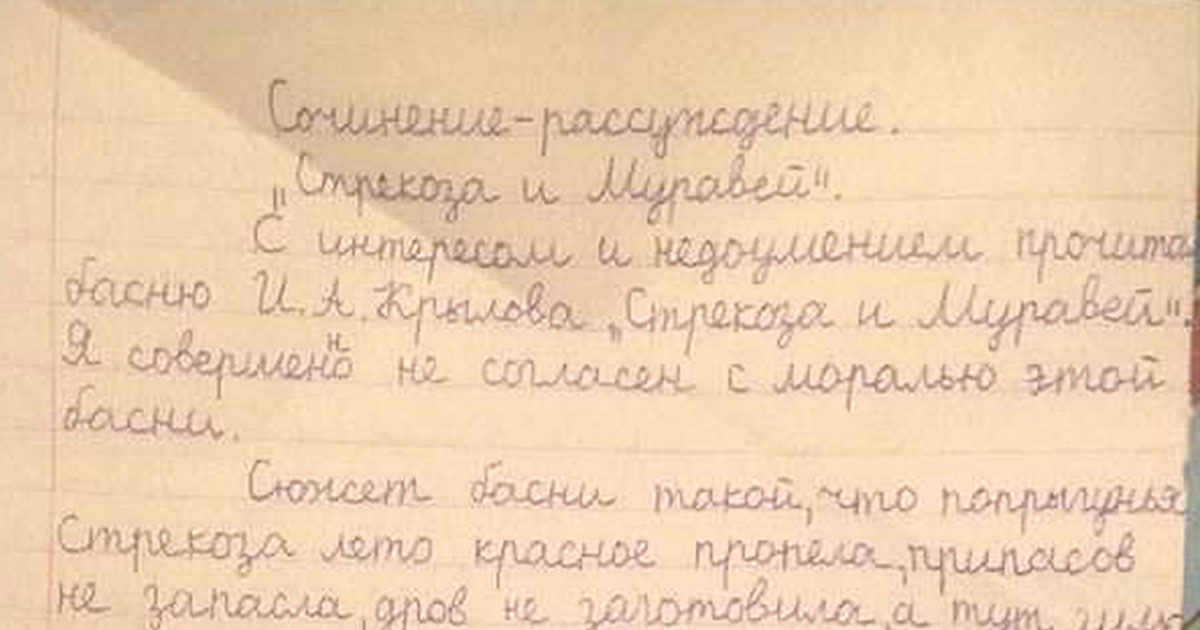 Сочинение-рассуждение.
„Стрекоза и Муравей".
С интересом и недоумением прочита
басню И.А.Крылова „Стрекоза и Муравей".
Я совершенно не согласен с моралью этой
басни.
Сюжет басни такой, что попрыгунья
Стрекоза лето красное пропела, припасов
не запасла, дров не заготовила, а тут